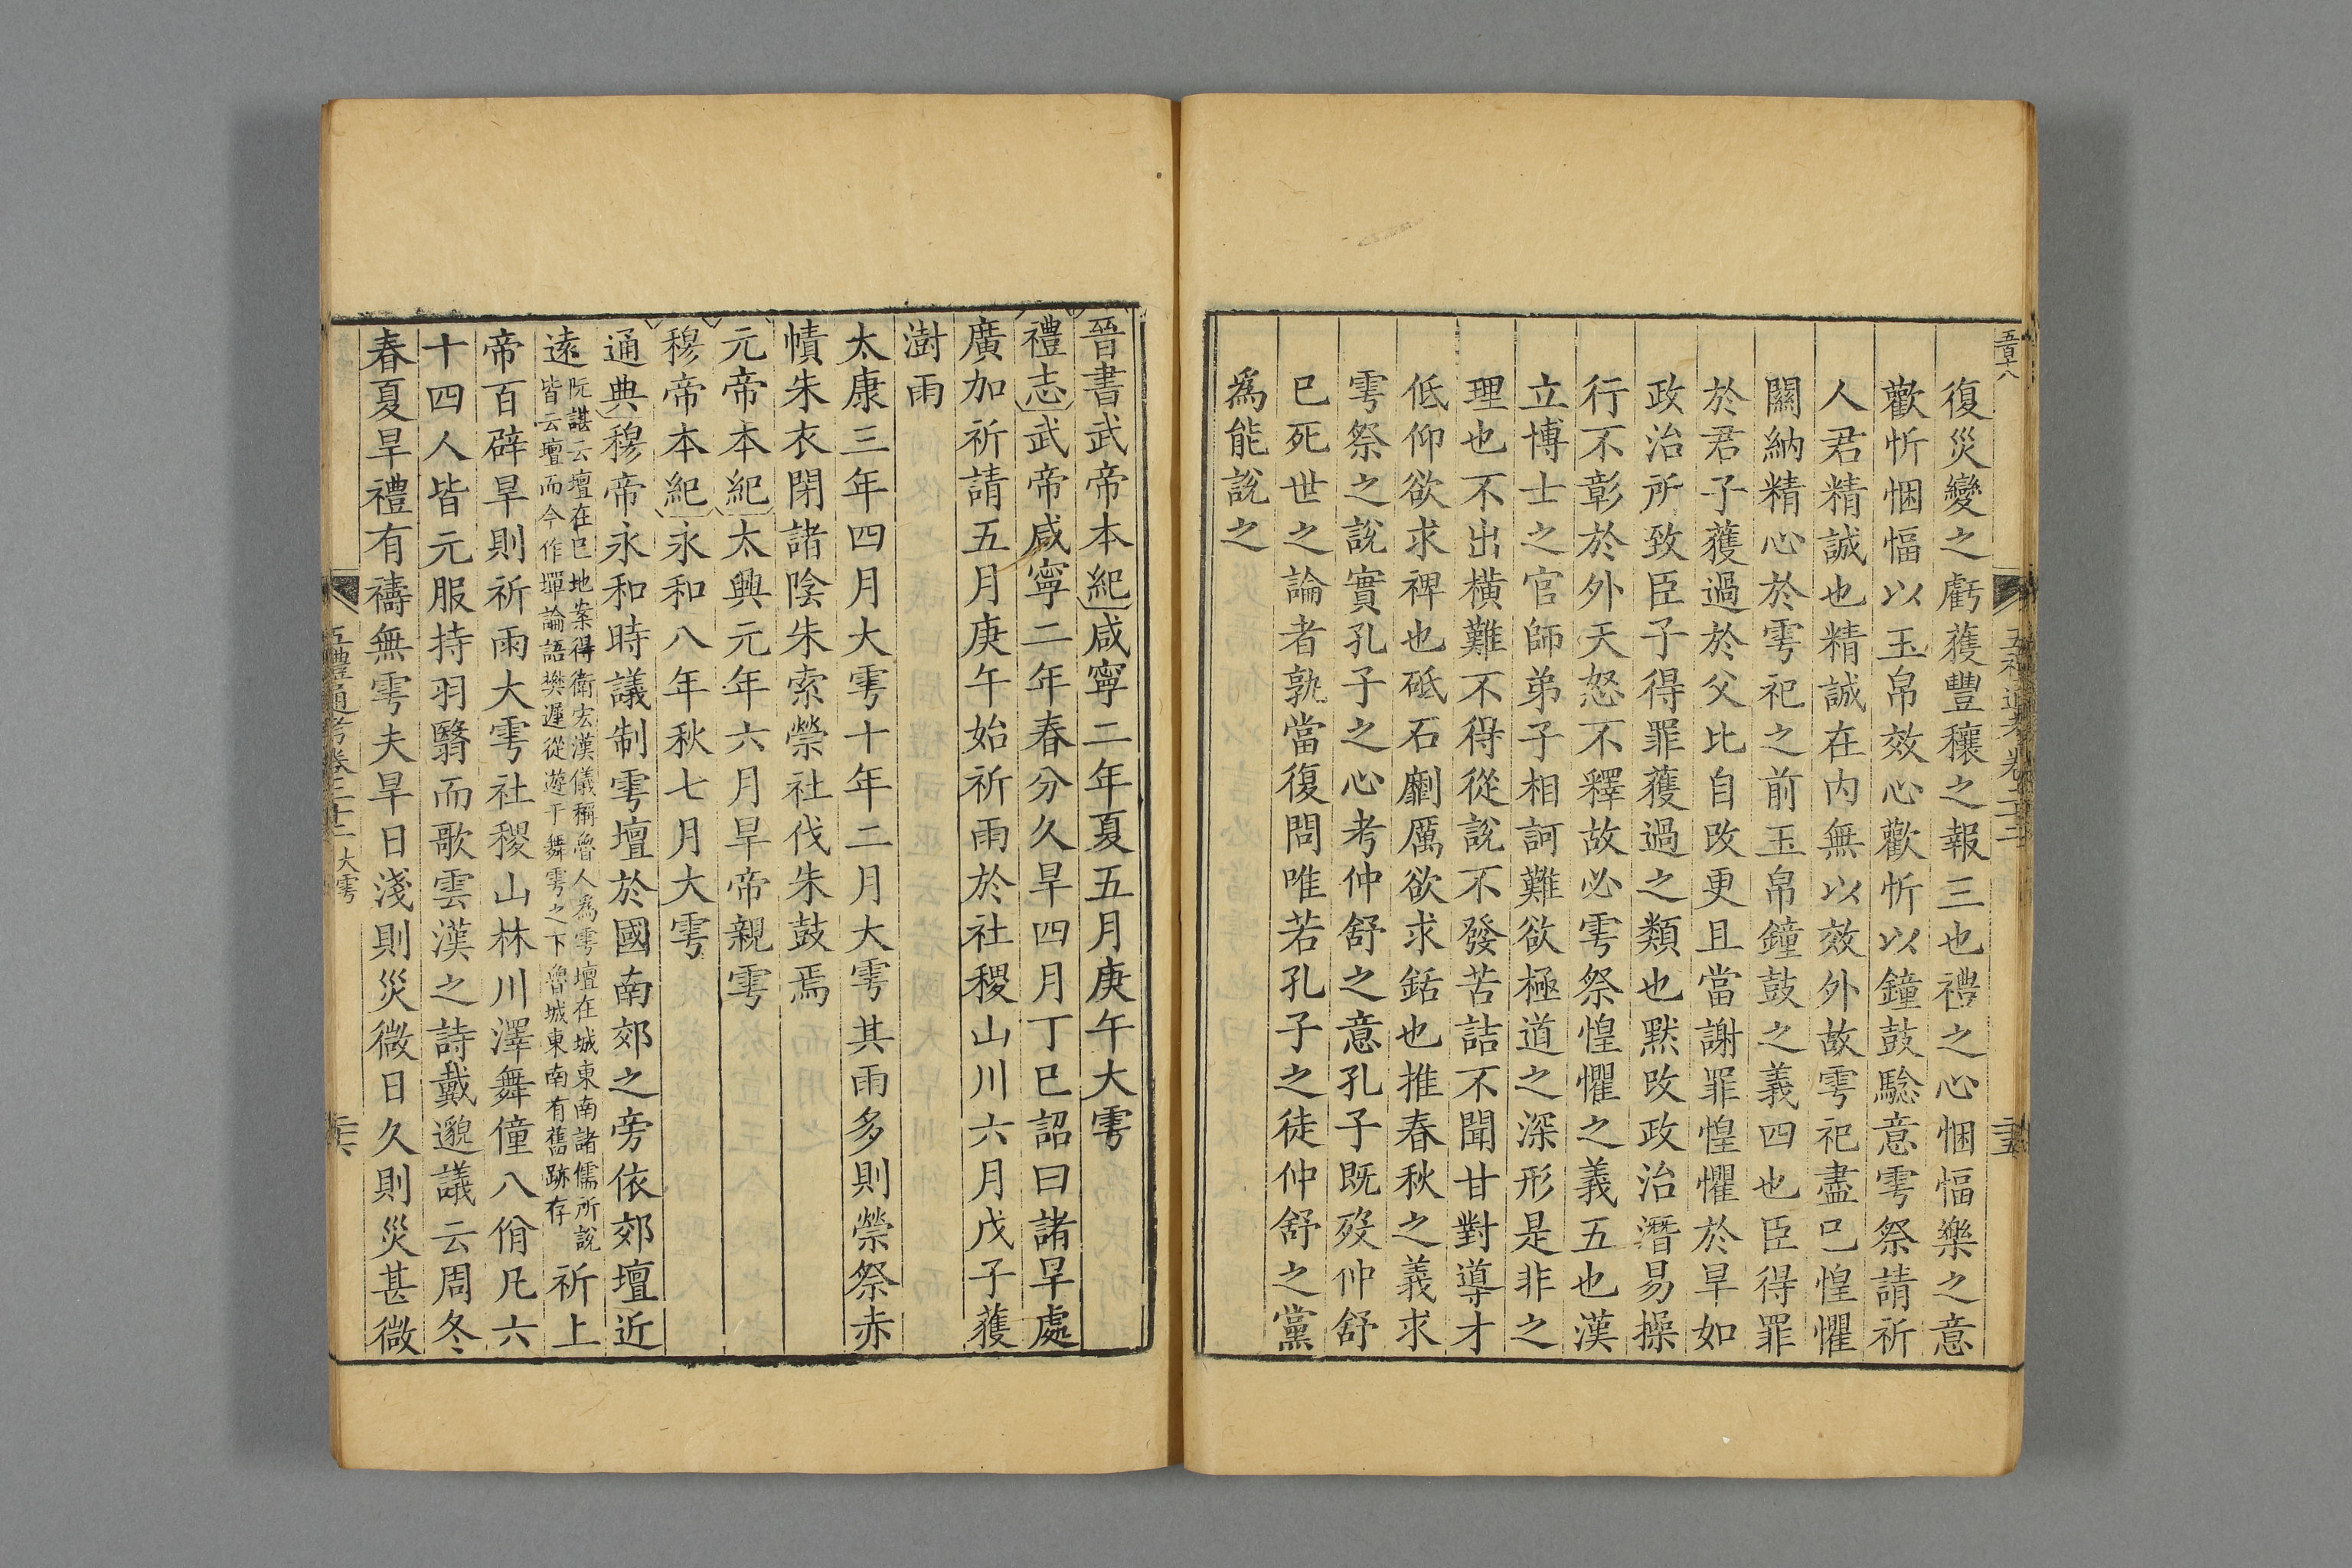 五百十八
復災變之虧獲豐穰之報三也禮之心悃愊樂之意
歡忻悃愊以玉帛效心歡忻以鐘鼓驗意雩祭請祈
人君精誠也精誠在內無以效外故雩祀盡已惶懼
關納精心於雩祀之前玉帛鐘鼓之義四也臣得罪
於君子獲過於父比自改更且當謝罪惶懼於旱如
政治所致臣子得罪獲過之類也默改政治潛易操
行不彰於外天怒不釋故必雩祭惶懼之義五也漢
立博士之官師弟子相訶難欲極道之深形是非之
理也不出橫難不得從說不發苦詰不聞甘對導才
低仰欲求裨也砥石劘厲欲求銛也推春秋之義求
雩祭之說實孔子之心考仲舒之意孔子既歿仲舒
已死世之論者孰當復問唯若孔子之徒仲舒之黨
爲能說之
晉書武帝本紀咸寧二年夏五月庚午大雩
禮志武帝咸寧二年春分久旱四月丁巳詔曰諸旱處
廣加祈請五月庚午始祈雨於社稷山川六月戊子獲
澍雨
太康三年四月大雩十年二月大雩其雨多則禜祭赤
幘朱衣閉諸陰朱索禜社伐朱鼓焉
元帝本紀太興元年六月旱帝親雩
穆帝本紀永和八年秋七月大雩
通典穆帝永和時議制雩壇於國南郊之旁依郊壇近
遠阮諶云壇在巳地案得衛宏漢儀稱魯人爲雩壇在城東南諸儒所說
皆云壇而今作墠論語樊遲從遊于舞雩之下魯城東南有舊跡存
祈上
帝百辟旱則祈雨大雩社稷山林川澤舞僮八佾凡六
十四人皆元服持羽翳而歌雲漢之詩戴邈議云周冬
春夏旱禮有禱無雩夫旱日淺則災微日久則災甚微
五禮通考卷二十二 大雩